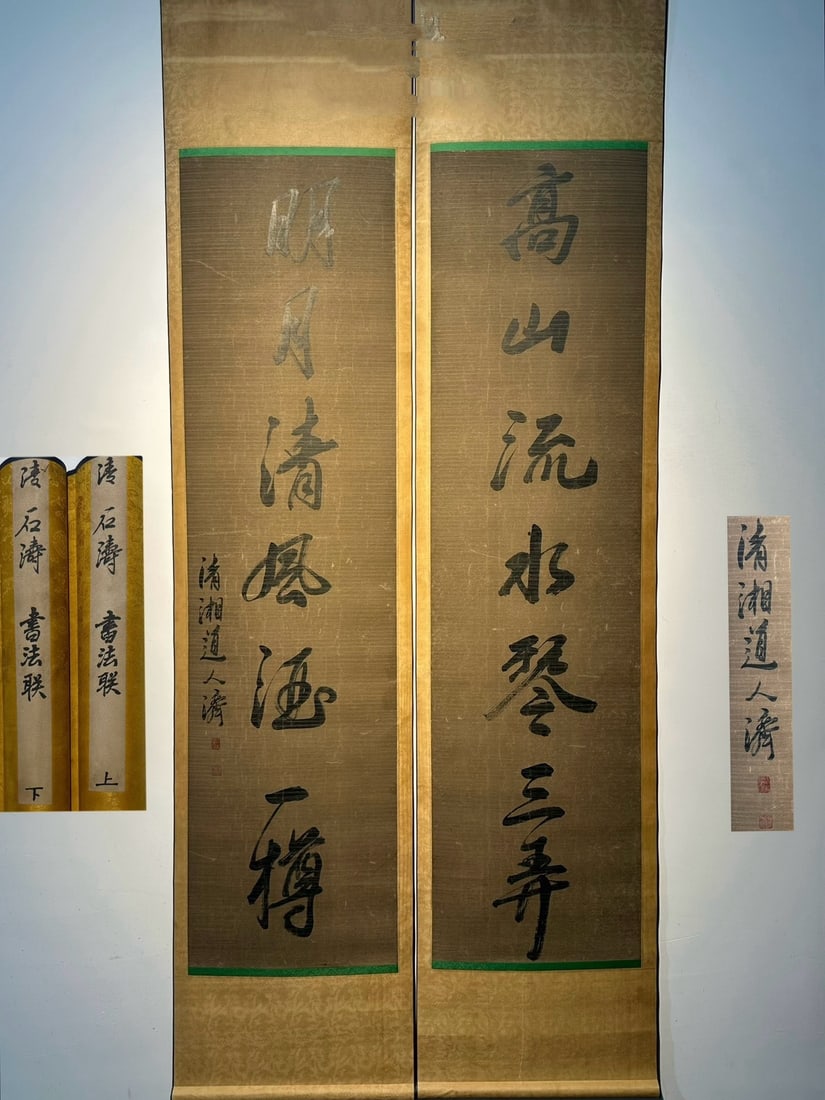 高山流水琴三弄
明月清風酒一樽
清湘道人濟
清 石濤 書法联 上
清 石濤 書法联 下
清湘道人濟